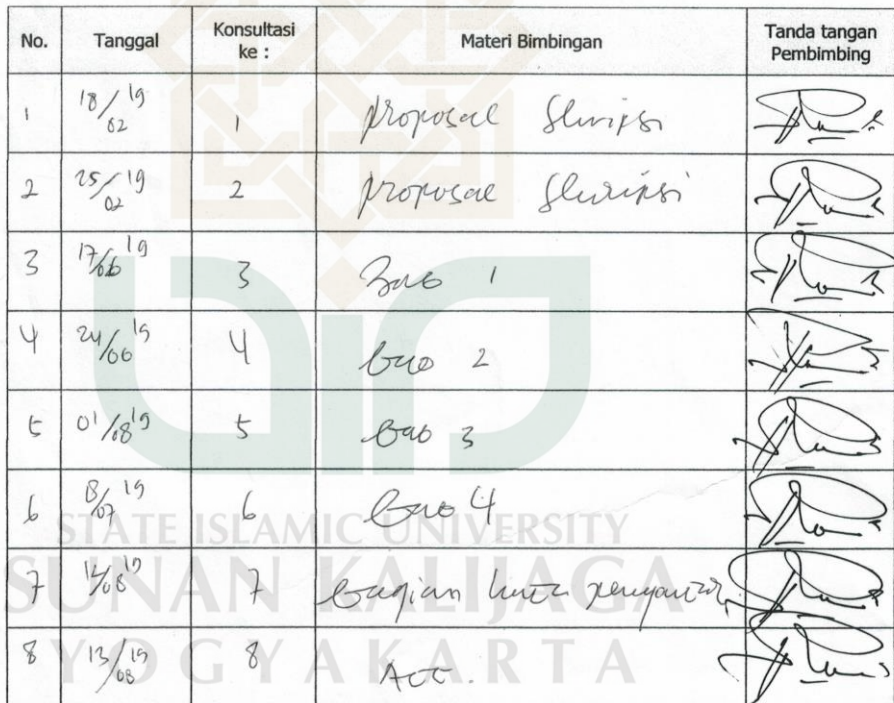 No. Tanggal Konsultasi ke : Materi Bimbingan Tanda tangan Pembimbing
1 18/02 19 1 proposal Skripsi
2 25/02 19 2 proposal Skripsi
3 17/06 19 3 Bab 1
4 24/06 19 4 bab 2
5 01/08 19 5 bab 3
6 /07 19 6 bab 4
7 /08 19 7 bagian kata pengantar
8 13/08 19 8 Acc.
STATE ISLAMIC UNIVERSITY
SUNAN KALIJAGA
YOGYAKARTA